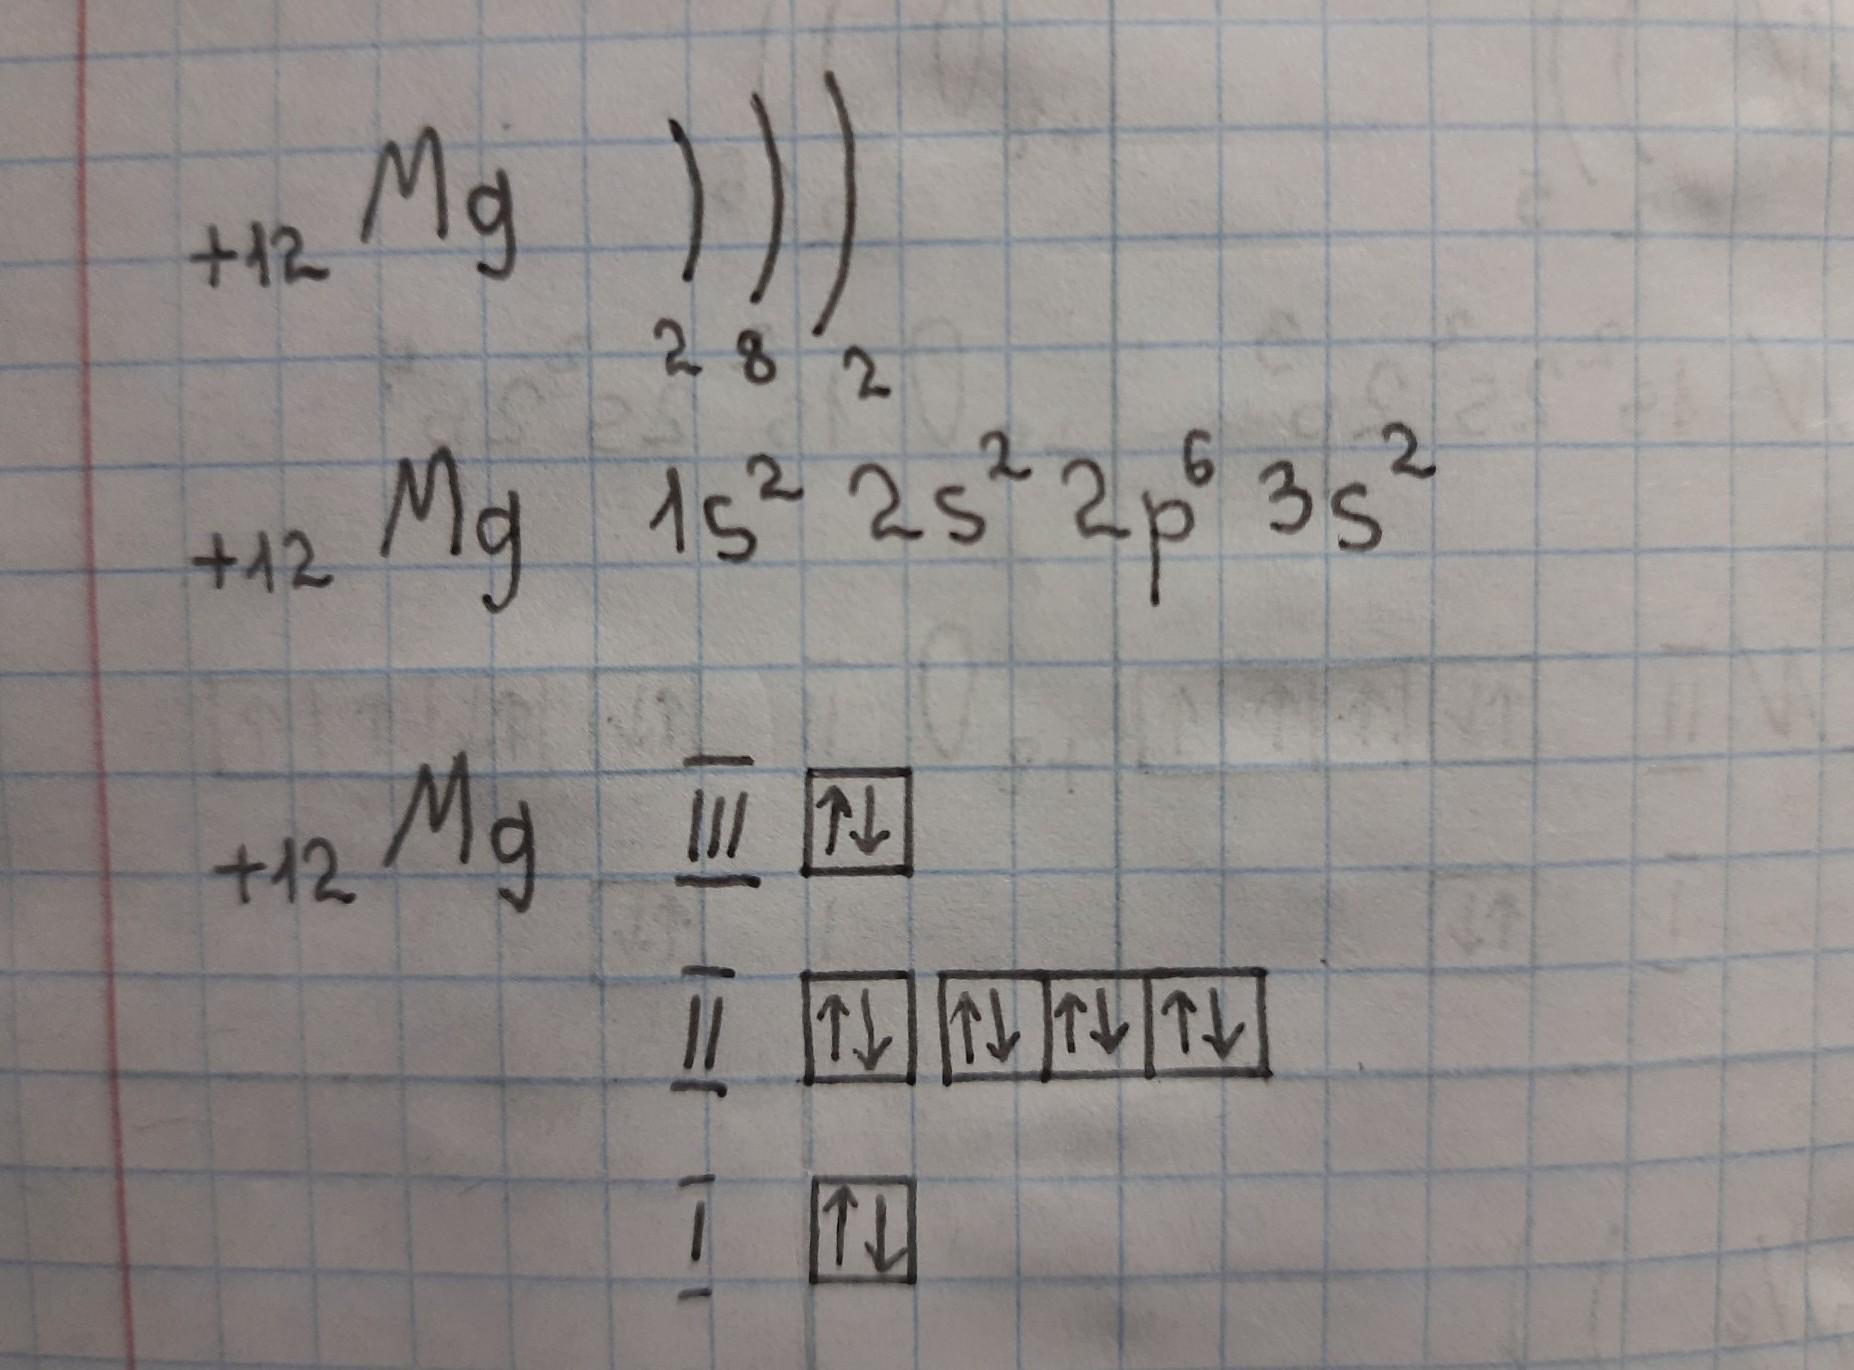 +12 Mg ) ) )
2 8 2
+12 Mg 1s² 2s² 2p⁶ 3s²
+12 Mg III ↑↓
II ↑↓ ↑↓ ↑↓ ↑↓
I ↑↓